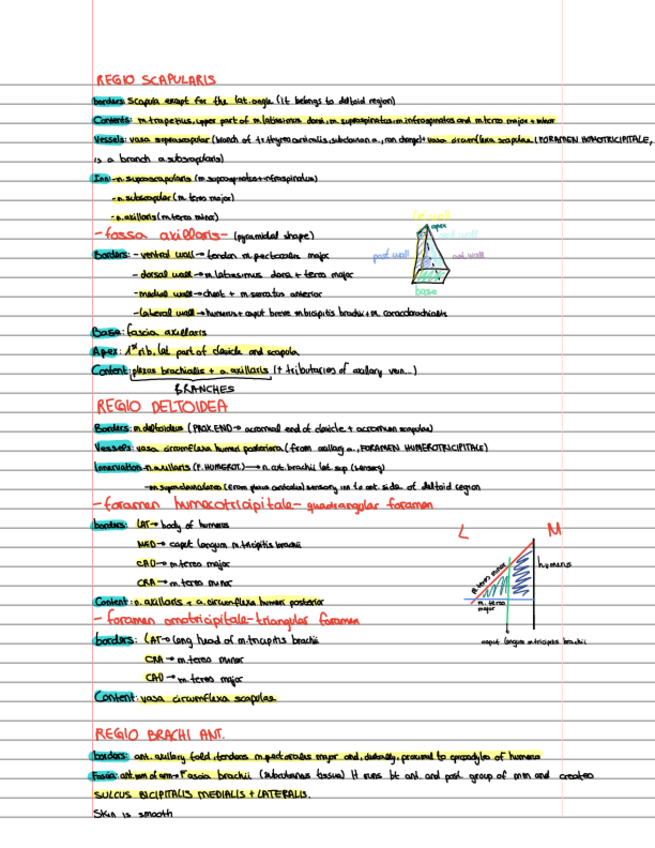 REGIO SCAPULARIS
borders: scapula except for the lat. angle (it belongs to deltoid region)
Contents: m. trapezius, upper part of m. latissimus dorsi, m. supraspinatus, m. infraspinatus and m. teres major + minor
Vessels: vasa suprascapular (branch of tr. thyrocervicalis, subclavian a., + vasa circumflexa scapulae (FORAMEN HOMOTRICIPITALE,
is a branch a. subscapularis)
Inn: - n. suprascapularis (m. supraspinatus + infraspinatus)
- n. subscapular (m. teres major)
- n. axillaris (m. teres minor)
- fossa axillaris - (pyramidal shape)
lat wall
apex
med wall
post wall
ant. wall
base
Borders: - ventral wall → tendon m. pectoralis major
- dorsal wall → m. latissimus dorsi + teres major
- medial wall → chest + m. serratus anterior
- lateral wall → humerus + caput breve m. bicipitis brachii + m. coracobrachialis
Base: fascia axillaris
Apex: 1st rib, lat. part of clavicle and scapula
Content: plexus brachialis + a. axillaris (+ tributaries of axillary vein...)
BRANCHES
REGIO DELTOIDEA
Borders: m. deltoideus (PROX. END → acromial end of clavicle + acromion scapulae)
Vessels: vasa circumflexa humeri posteriora (from axillary a., FORAMEN HUMEROTRICIPITALE)
Innervation: - n. axillaris (F. HUMEROT.) → n. cut. brachii lat. sup (sensory)
- nn. supraclaviculares (from plexus cervicalis) sensory inn to ant. side of deltoid region
- foramen humerotricipitale - quadrangular foramen
borders: LAT → body of humerus
MED → caput longum m. tricipitis brachii
CAD → m. teres major
CRA → m. teres minor
Content: n. axillaris + a. circumflexa humeri posterior
L M
m. teres minor
humerus
m. teres
major
caput longum m. tricipitis brachii
- foramen omotricipitale - triangular foramen
borders: LAT → long head of m. tricipitis brachii
CRA → m. teres minor
CAD → m. teres major
Content: vasa circumflexa scapulae
REGIO BRACHI ANT.
borders: ant. axillary fold, tendons m. pectoralis major and, distally, proximal to epicondyles of humerus
Fascia: ant. mm of arm → Fascia brachii (subcutaneus tissue) It runs bt ant. and post. group of mm and creates
SULCUS BICIPITALIS MEDIALIS + LATERALIS.
Skin is smooth